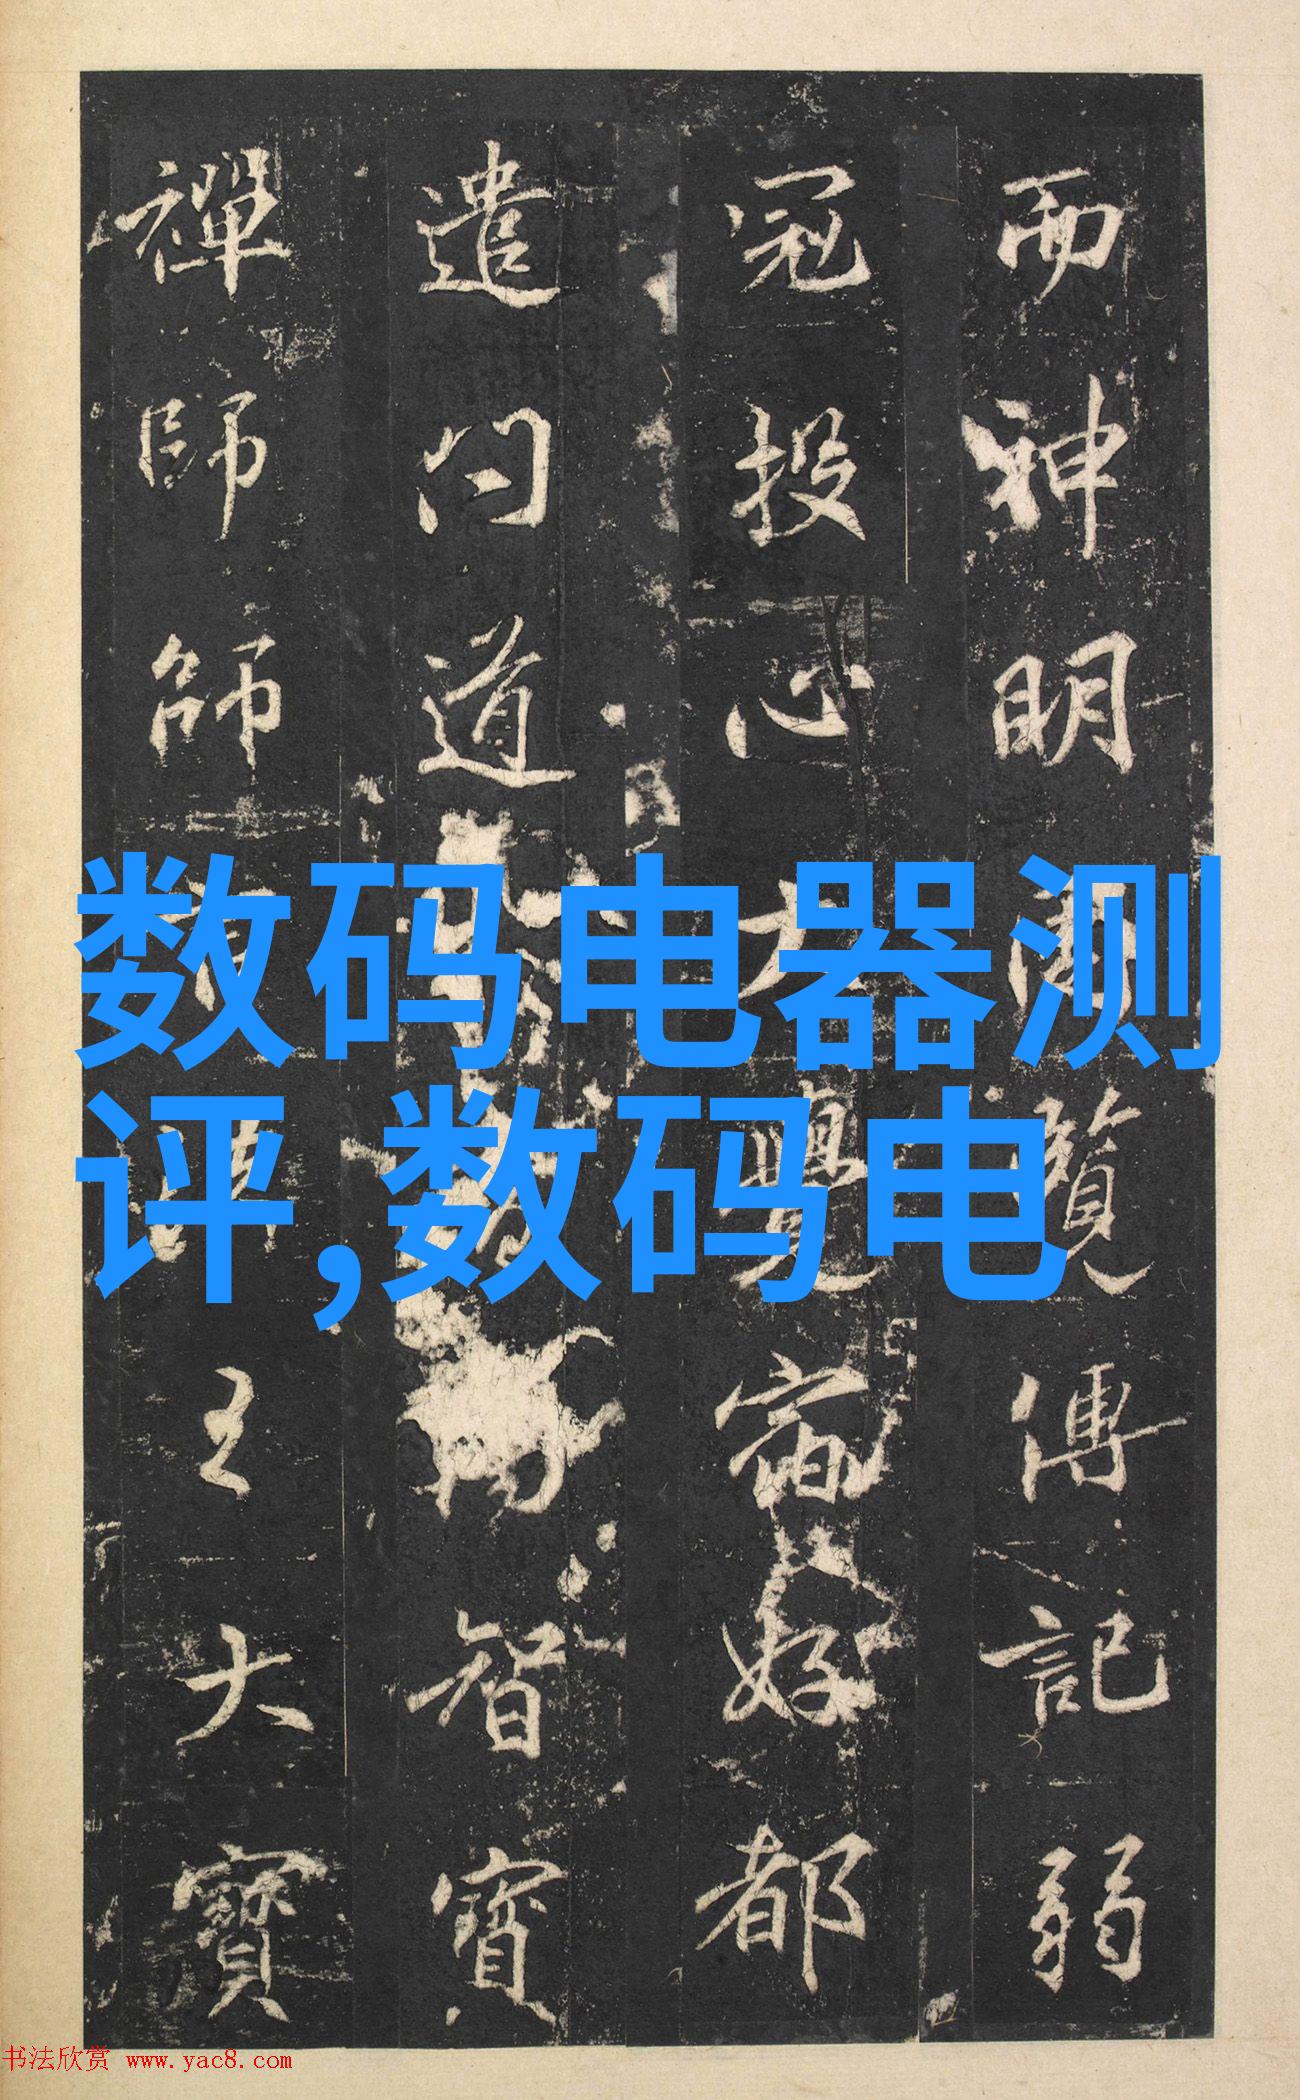 而神明
覽傳記弱
冠投心大
覺宿好都
遣問道
智寶
禪師師
主大寶
数码电器测
评,数码电
书法欣赏 www.yac8.com